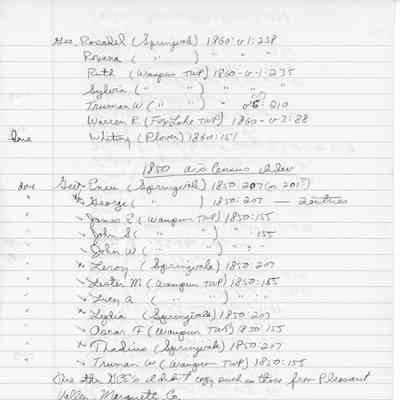 Gee, Rosadel (Springvale) 1860:v1:238
Rovena ( " ) " "
Ruth (Waupun TWP) 1860-v-1:235
Sylvia ( " " ) " "
Truman W ( " " ) " v5:210
Warren R (Fox Lake TWP) 1860-v3:88
done Whiting (Plover) 1860:151
1850 Census
done Gee, (Springvale) 1850:207 (or 201?)
George ( " ) 1850:207 — 2 entries
James E (Waupun TWP) 1850:155
John S ( " " ) " 155
John W ( " " ) " "
Leroy (Springvale) 1850:207
Lester M (Waupun TWP) 1850:155
Lucy A ( " " ) " "
Lydia (Springvale) 1850:207
Oscar F (Waupun TWP) 1850:155
Thadius (Springvale) 1850:207
Truman W (Waupun TWP) 1850:155
the GEE's I didn't copy such as those from Pleasant
Valley, Marquette Co.